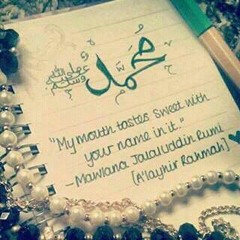 مُحَمَّد ﷺ
"My mouth tastes sweet with
your name in it."
- Mawlana Jalaluddin Rumi
[A'layhir Rahmah]